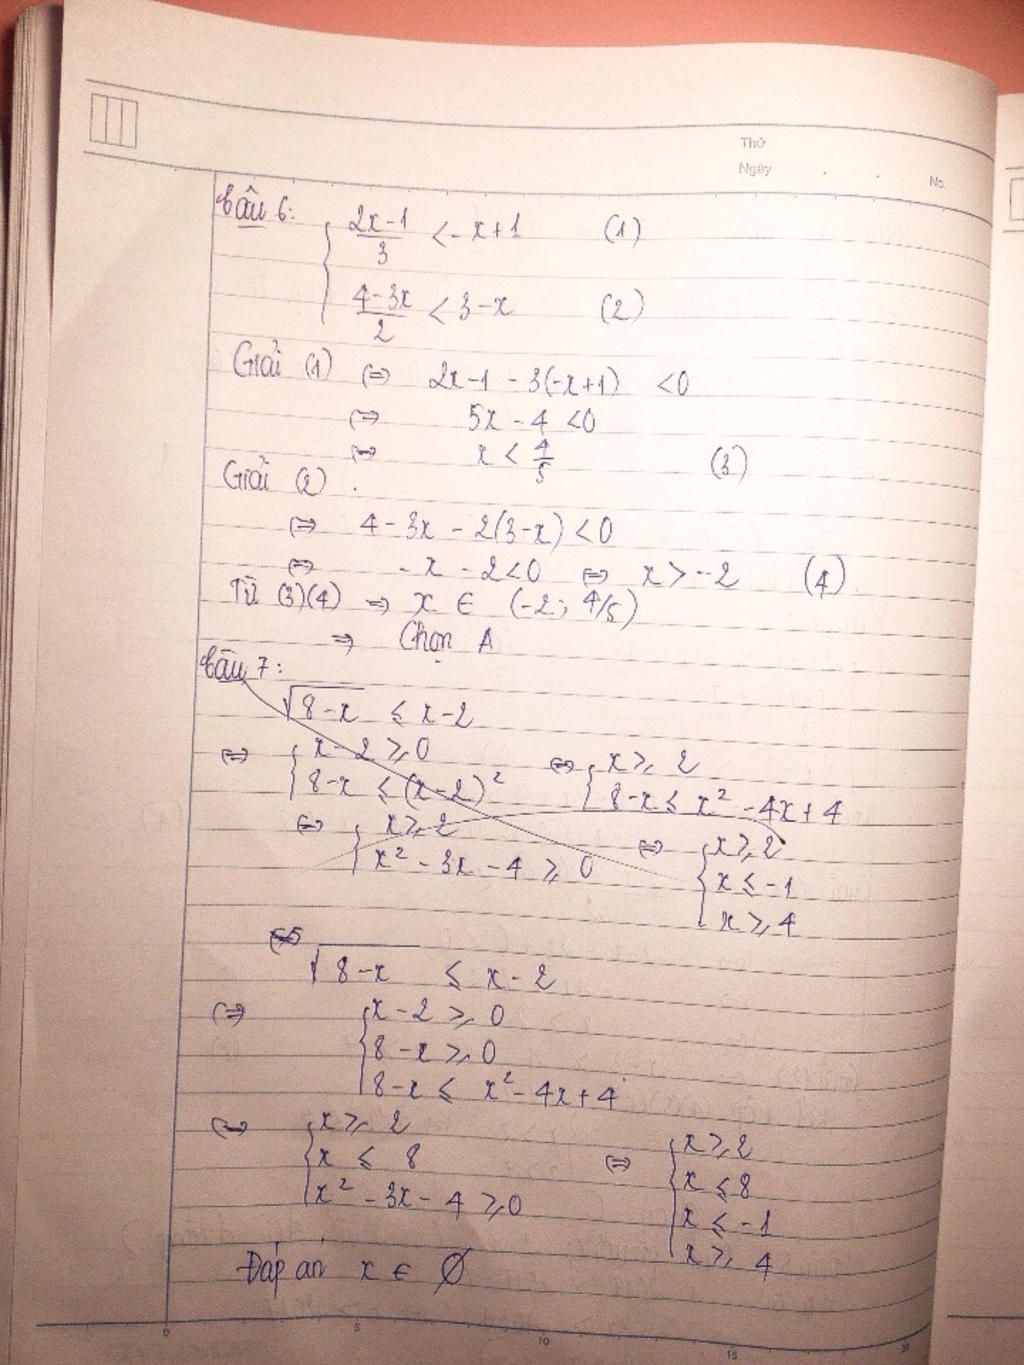 Thứ
Ngày . . No.
Câu 6:
{ (2x-1)/3 < -x+1 (1)
(4-3x)/2 < 3-x (2)
Giải (1) ⇔ 2x-1 - 3(-x+1) <0
⇔ 5x - 4 <0
⇔ x < 4/5 (3)
Giải (2) .
⇔ 4 - 3x - 2(3-x) <0
⇔ -x - 2<0 ⇔ x > -2 (4)
Từ (3)(4) ⇒ x ∈ (-2; 4/5)
⇒ Chọn A
Câu 7:
√(8-x) ⩽ x-2
⇔ { x-2 ⩾ 0 ⇔ { x ⩾ 2
8-x ⩽ (x-2)² 8-x ⩽ x² - 4x + 4
⇔ { x ⩾ 2 ⇔ { x ⩾ 2
x² - 3x - 4 ⩾ 0 x ⩽ -1
x ⩾ 4
√(8-x) ⩽ x-2
⇔ { x-2 ⩾ 0
8-x ⩾ 0
8-x ⩽ x² - 4x + 4
⇔ { x ⩾ 2 ⇔ { x ⩾ 2
x ⩽ 8 x ⩽ 8
x² - 3x - 4 ⩾ 0 x ⩽ -1
x ⩾ 4
Đáp án x ∈ ∅
0 5 10 15